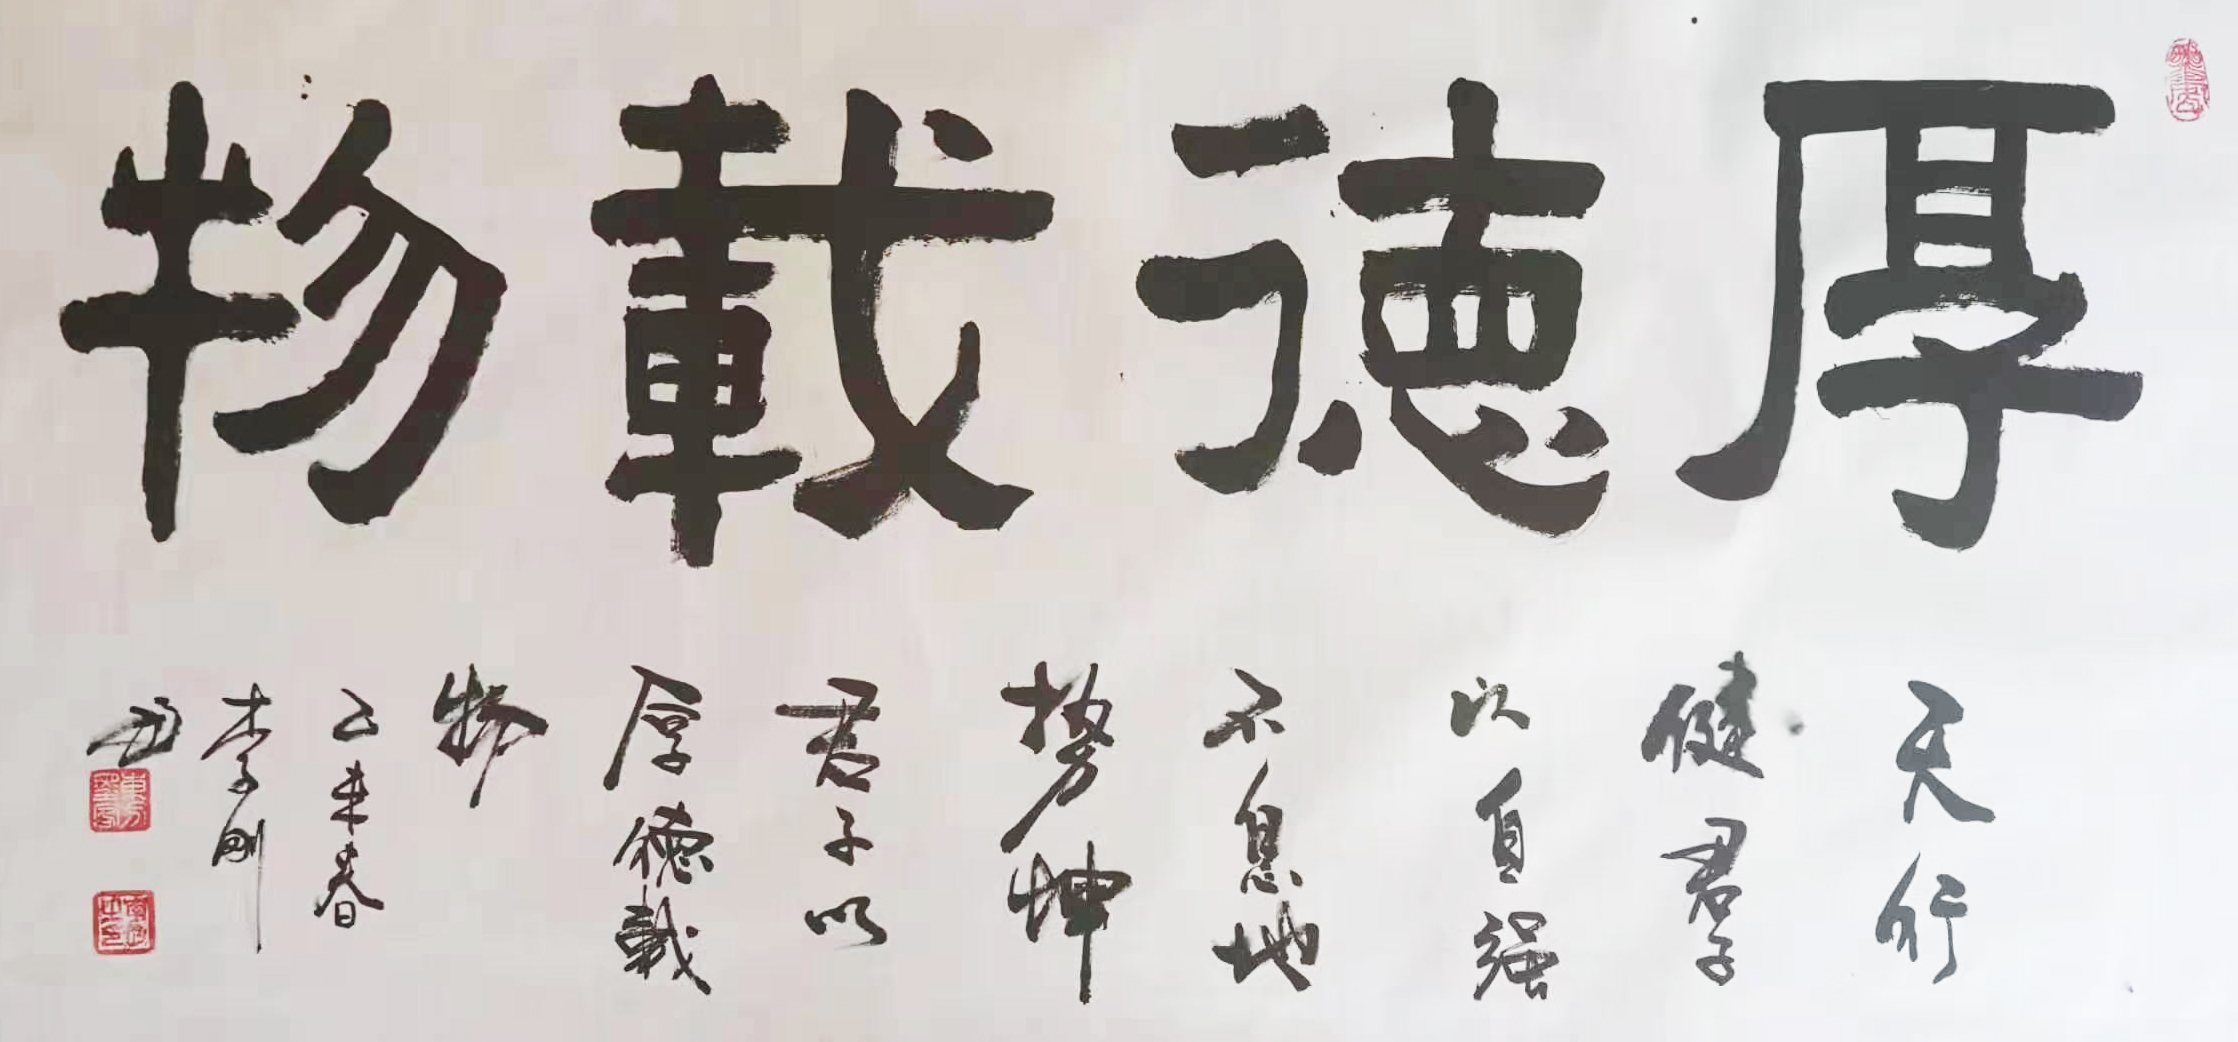 厚德載物
天行
健君子
以自强
不息地
勢坤
君子以
厚德載
物
乙未春
李剛